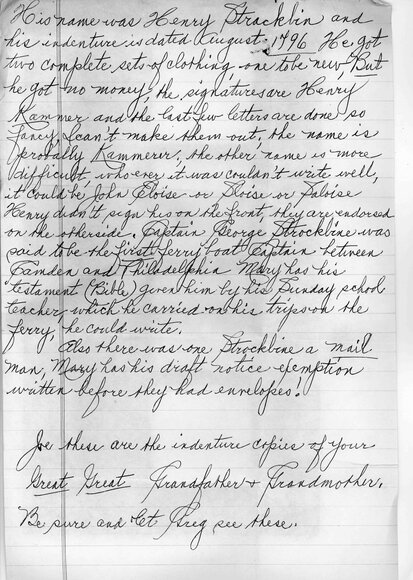 His name was Henry Stracklin and
his indenture is dated August 1796 He got
two complete sets of clothing, one to be new, But
he got no money, the signatures are Henry
Kammer and the last few letters are done so
fancy I can't make them out, the name is
probally Kammerer, the other name is more
difficult, who ever it was couldn't write well,
it could be John Cloise or Sloise or Saloise
Henry didn't sign his on the front, they are endorsed
on the otherside. Captain George Strockbine was
said to be the first ferry boat Captain between
Camden and Philadelphia Mary has his
testament (Bible) given him by his Sunday school
teacher which he carried on his trips on the
ferry, he could write.
Also there was one Strockbine a mail
man, Mary has his draft notice exemption
written before they had envelopes!
Joe these are the indenture copies of your
Great Great Grandfather & Grandmother.
Be sure and let Greg see these.